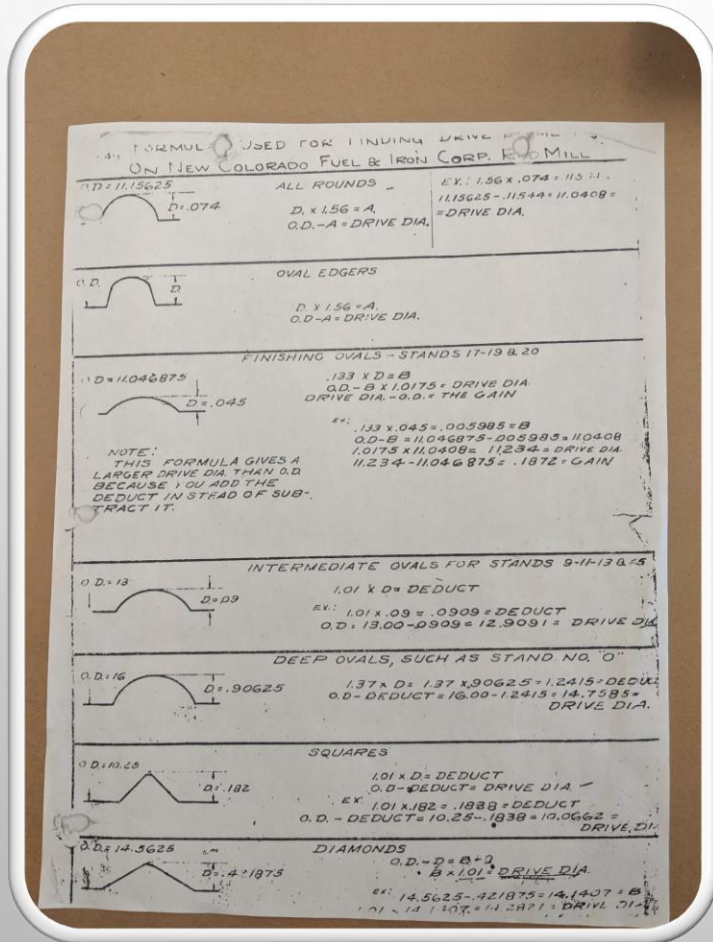 FORMUL USED FOR FINDING DRIVE
ON NEW COLORADO FUEL & IRON CORP. ROD MILL
O.D= 11.15625
D=.074
ALL ROUNDS
D. x 1.56 = A.
O.D.-A = DRIVE DIA.
EX.: 1.56 x .074 =
11.15625-.11544 = 11.0408 =
= DRIVE DIA.
OVAL EDGERS
O.D.
D.
D. x 1.56 = A.
O.D-A = DRIVE DIA.
FINISHING OVALS - STANDS 17-19 & 20
O.D = 11.046875
D=.045
.133 x D = B
O.D.- B x 1.0175 = DRIVE DIA.
DRIVE DIA.- O.D. = THE GAIN
EX:
.133 x .045 = .005985 = B
O.D-B = 11.046875-.005985 = 11.0408
1.0175 x 11.0408 = 11.234 = DRIVE DIA.
11.234 - 11.046875 = .1872 = GAIN
NOTE:
THIS FORMULA GIVES A
LARGER DRIVE DIA. THAN O.D.
BECAUSE YOU ADD THE
DEDUCT INSTEAD OF SUB-
TRACT IT.
INTERMEDIATE OVALS FOR STANDS 9-11-13 &
O.D.= 13
D=.09
1.01 x D = DEDUCT
EX.: 1.01 x .09 = .0909 = DEDUCT
O.D = 13.00-.0909 = 12.9091 = DRIVE DIA
DEEP OVALS, SUCH AS STAND NO. "O"
O.D.= 16
D=.90625
1.37 x D = 1.37 x .90625 = 1.2415 = DEDUC
O.D- DEDUCT = 16.00-1.2415 = 14.7585 =
DRIVE DIA.
SQUARES
O.D= 10.25
D=.182
1.01 x D = DEDUCT
O.D- DEDUCT = DRIVE DIA.
EX.
1.01 x .182 = .1838 = DEDUCT
O.D. - DEDUCT = 10.25-.1838 = 10.0662 =
DRIVE DI
DIAMONDS
O.D.= 14.5625
D=.421875
O.D.-D = B
B x 1.01 = DRIVE DIA.
EX: 14.5625-.421875 = 14.1407 = B
1.01 x 14.1407 = 14.2821 = DRIVE DIA